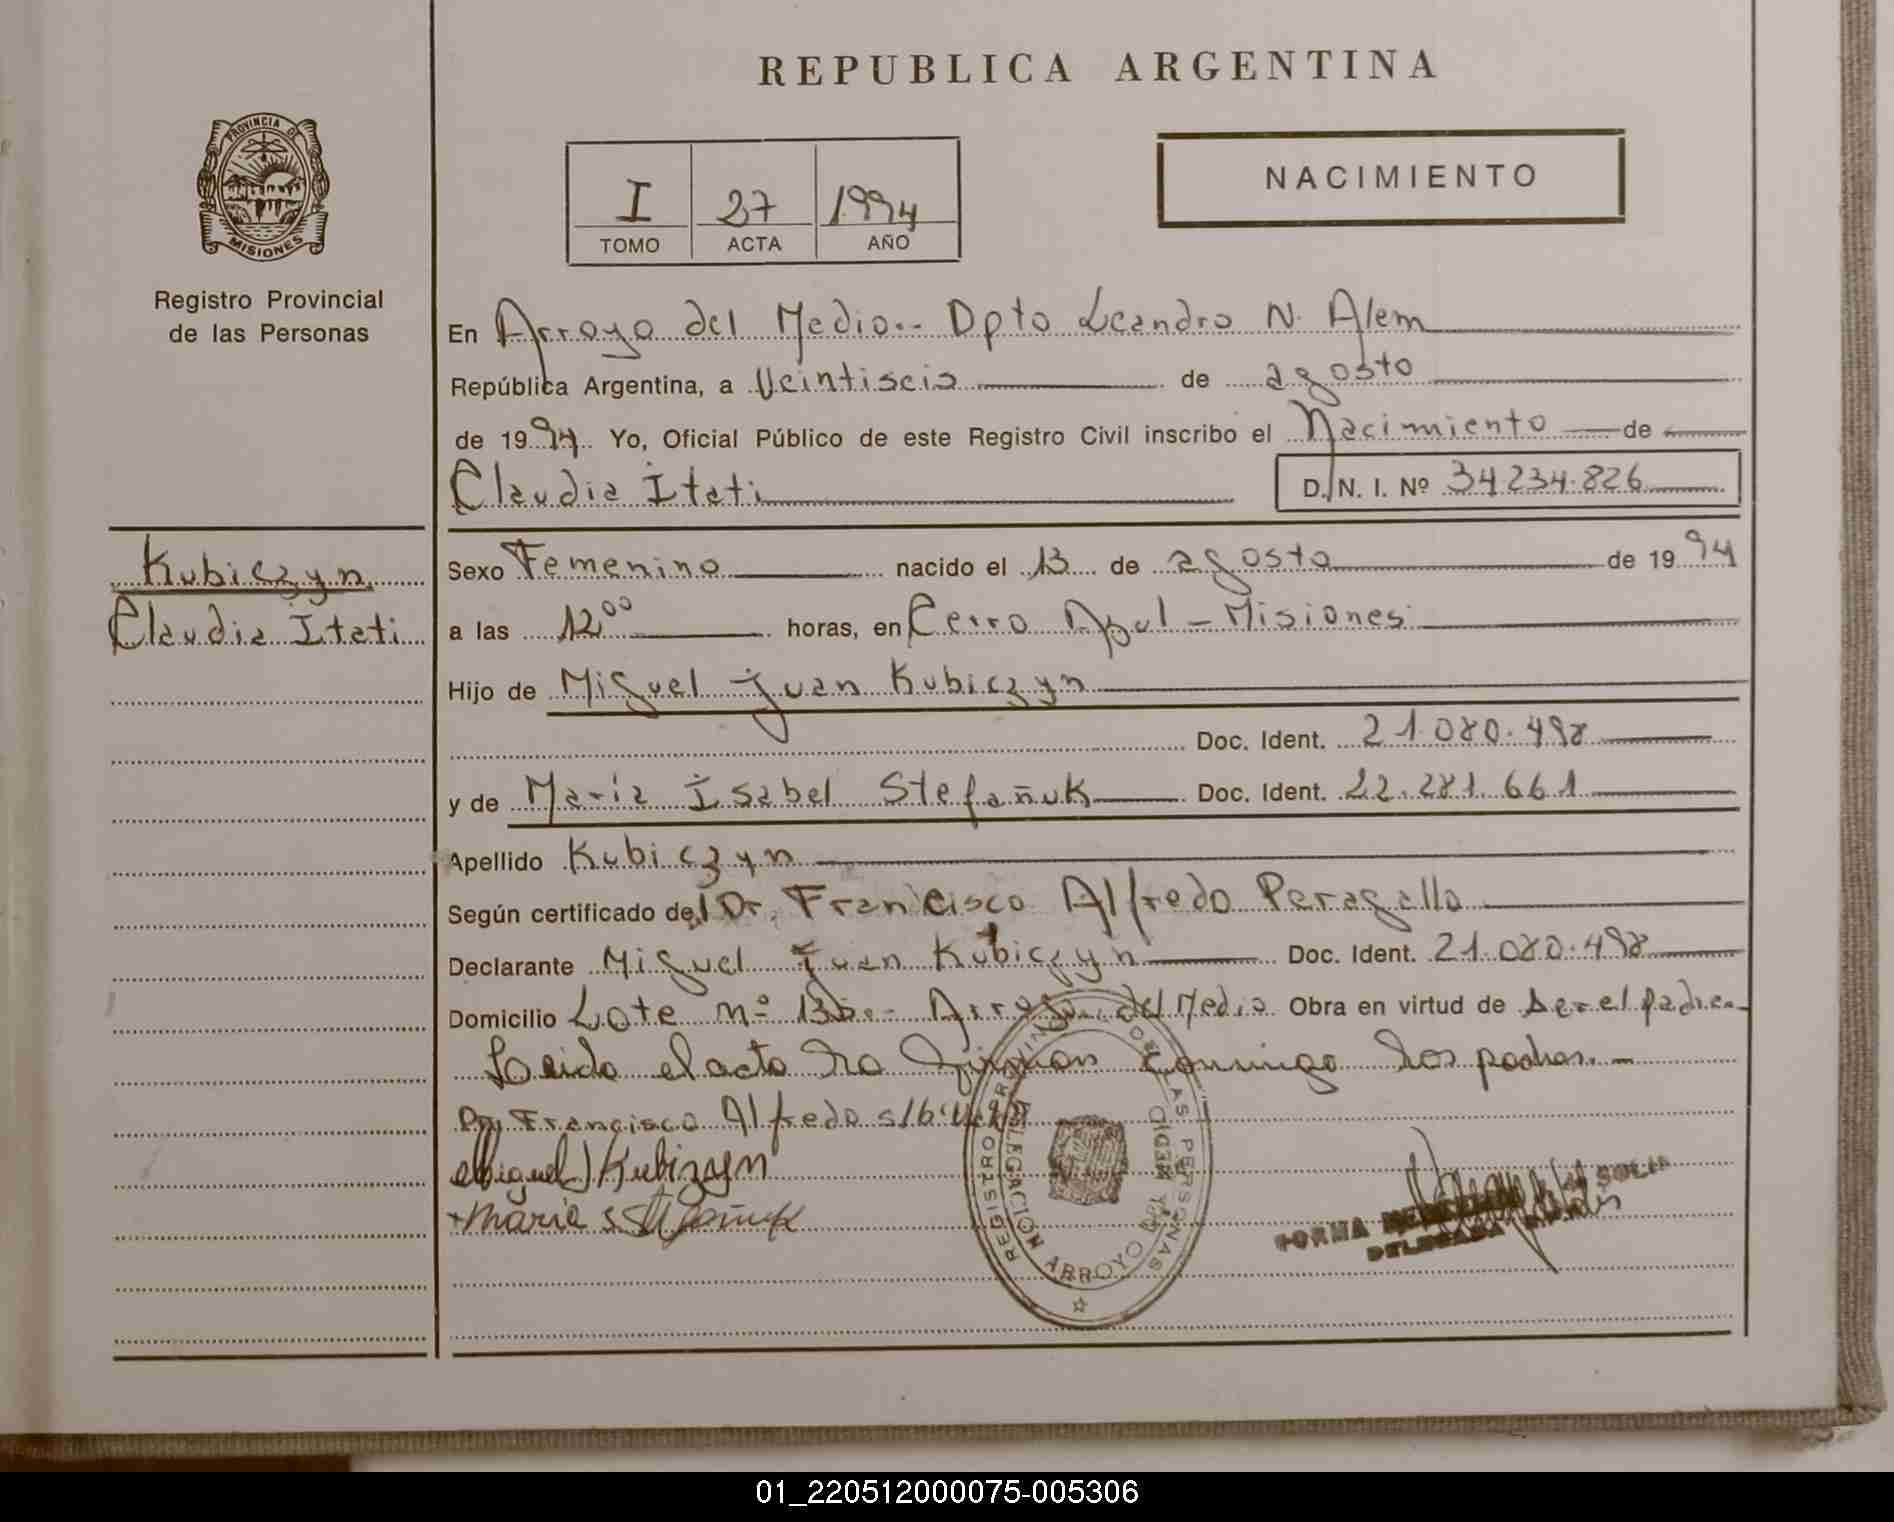 REPUBLICA ARGENTINA
PROVINCIA DE
MISIONES
Registro Provincial
de las Personas
I 27 1994
TOMO ACTA AÑO
NACIMIENTO
En Arroyo del Medio.- Dpto Leandro N. Alem
República Argentina, a Veintiseis de agosto
de 1994. Yo, Oficial Público de este Registro Civil inscribo el Nacimiento de
Claudia Itati
D. N. I. Nº 34.234.826
Kubiczyn
Claudia Itati
Sexo Femenino nacido el 13 de agosto de 1994
a las 12,00 horas, en Cerro Azul - Misiones
Hijo de Miguel Juan Kubiczyn
Doc. Ident. 21.080.498
y de María Isabel Stefañuk Doc. Ident. 22.281.661
Apellido Kubiczyn
Según certificado del Dr. Francisco Alfredo Peragallo
Declarante Miguel Juan Kubiczyn Doc. Ident. 21.080.498
Domicilio Lote nº 13 Arroyo del Medio Obra en virtud de ser el padre.-
Leida el acta la firman conmigo los padres.-
Francisco Alfredo
Miguel J Kubizyn
Maria S Stefañuk
REGISTRO PROVINCIAL DE LAS PERSONAS
DELEGACION ARROYO DEL MEDIO
NORMA
DELEGADA
01_220512000075-005306